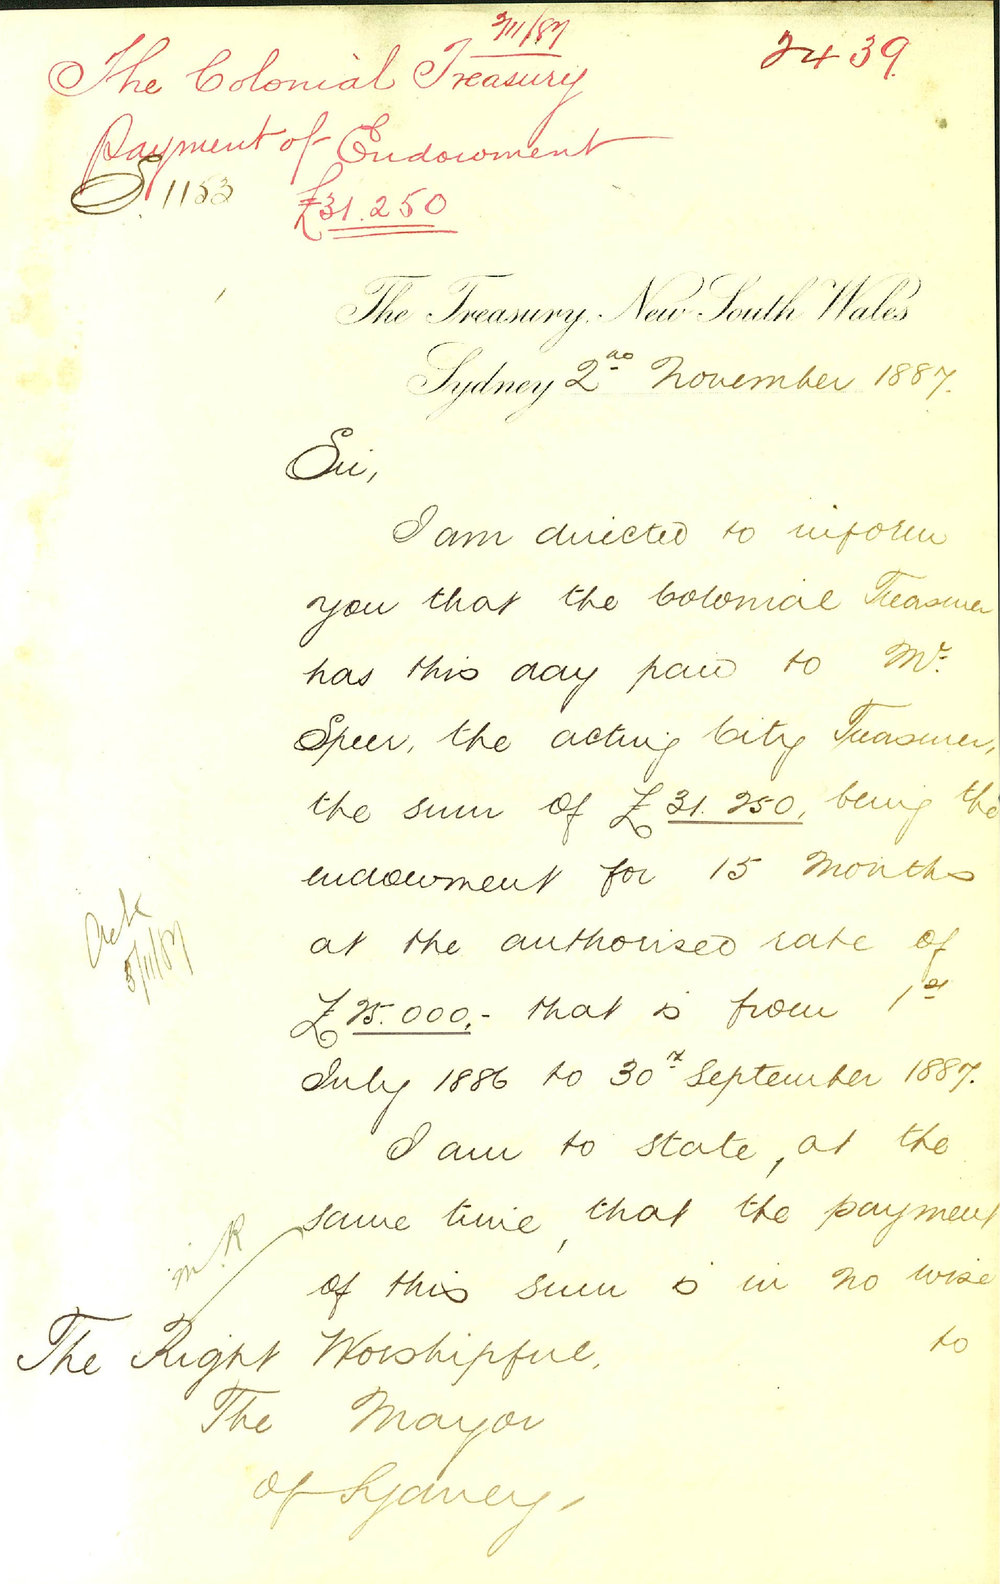 2/11/87
2439.
The Colonial Treasury
Payment of Endowment
S. 1153
£31.250
The Treasury, New South Wales
Sydney 2nd November 1887.
Sir,
I am directed to inform
you that the Colonial Treasurer
has this day paid to Mr.
Speer, the acting City Treasurer,
the sum of £31.250, being the
endowment for 15 Months
at the authorised rate of
£25.000,- that is from 1st
July 1886 to 30th September 1887.
I am to state, at the
same time, that the payment
of this sum is in no wise
to
Ack
3/11/87
M.R
The Right Worshipful,
The Mayor
of Sydney,